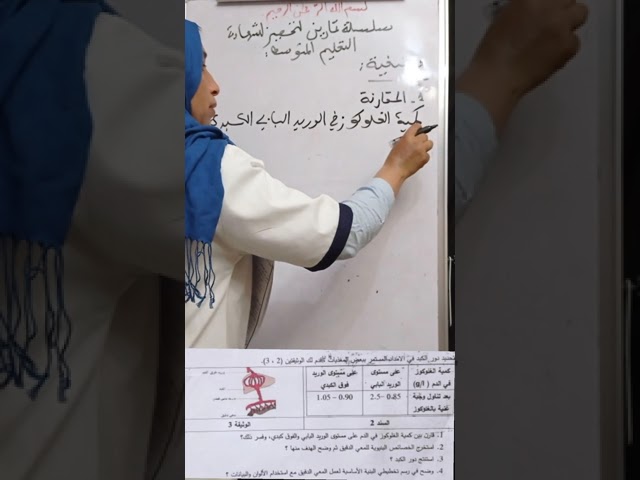 بسم الله الرحمن الرحيم
سلسلة تمارين لتحضير لشهادة
التعليم المتوسط:
1- المقارنة
كمية الغلوكوز في الوريد البابي الكبدي
تحديد دور الكبد في الامداد المستمر ببعض المغذيات نقدم لك الوثيقتين (2 ، 3).
كمية الغلوكوز في الدم (g/l)
على مستوى الوريد البابي
على مستوى الوريد فوق الكبدي
بعد تناول وجبة غنية بالغلوكوز
2.5- 0.85
1.05 – 0.90
السند 2
الوثيقة 3
1. قارن بين كمية الغلوكوز في الدم على مستوى الوريد البابي والفوق كبدي، وفسر ذلك؟
2. استخرج الخصائص البنيوية للمعي الدقيق ثم وضح الهدف منها ؟
3. استنتج دور الكبد ؟
4. وضح في رسم تخطيطي البنية الأساسية لعمل المعي الدقيق مع استخدام الألوان والبيانات ؟